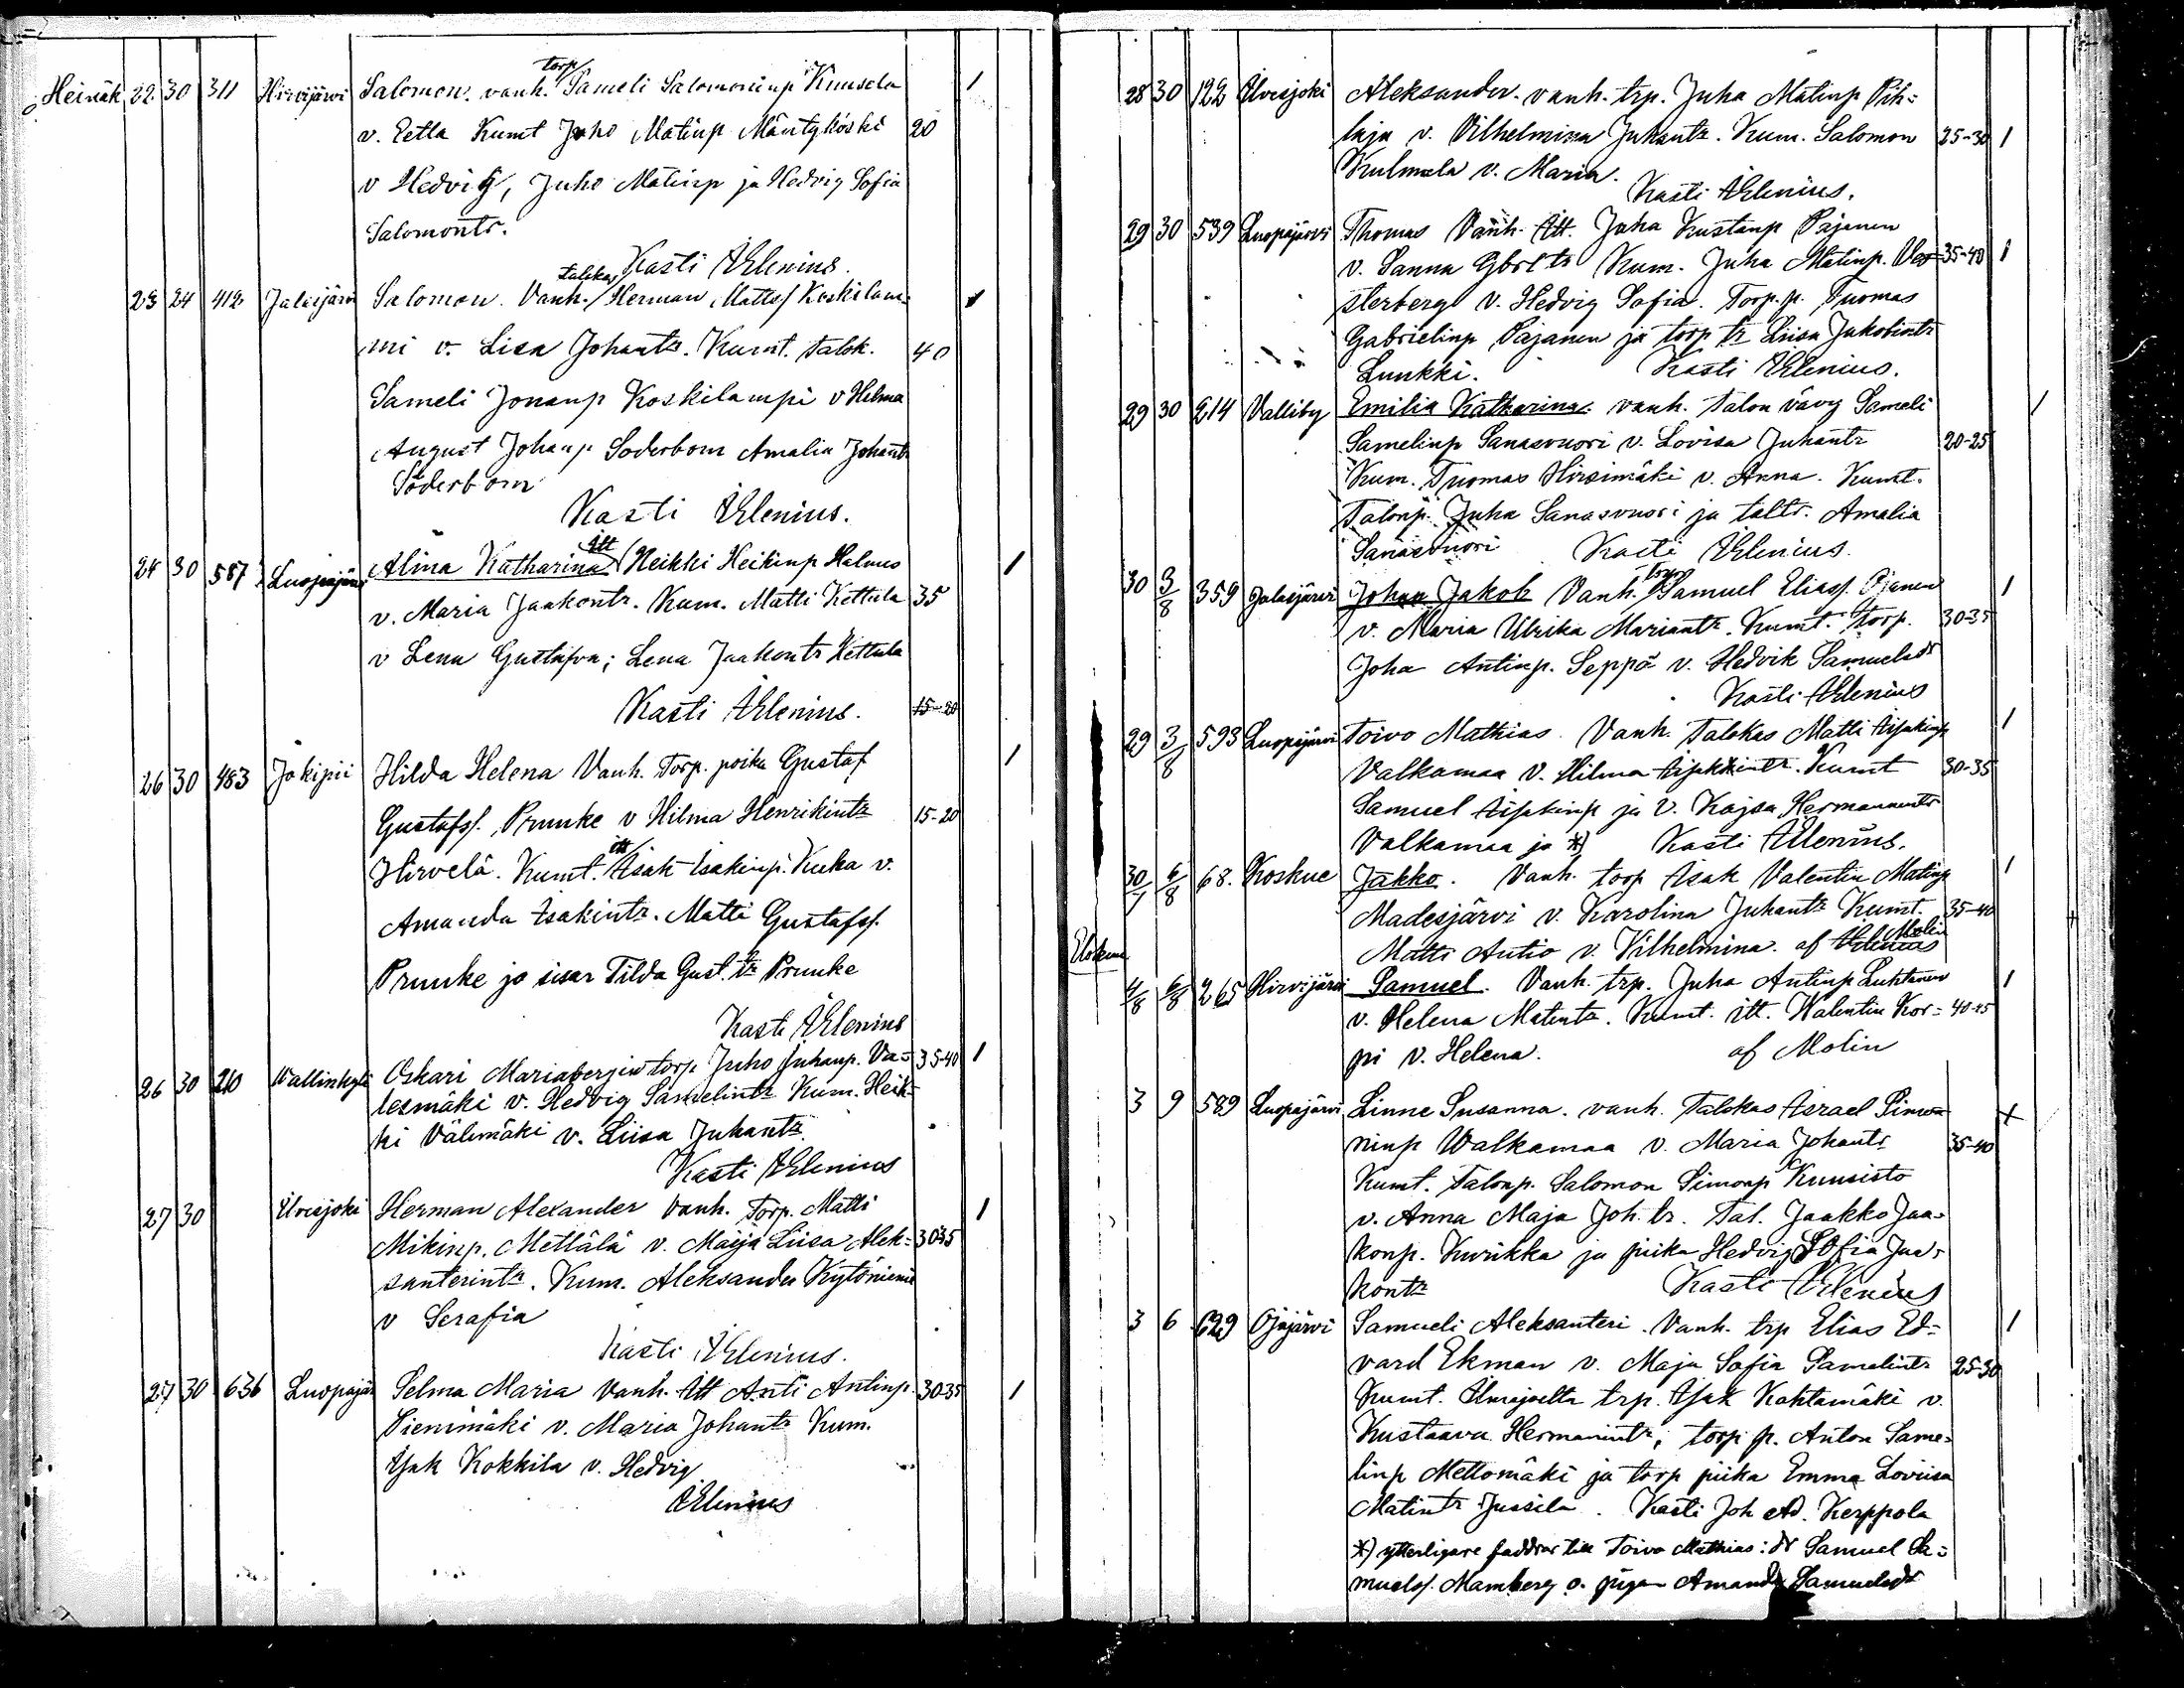 Heinäk 22 30 311 Hirvijärvi Salomon. vanh. torp Sameli Salomoninp Knuusela 1
v. Eetla Kumt Juho Matinp Mäntykoski 20
v Hedvig, Juho Matinp ja Hedvig Sofia
Salomontr.
Kasti Elenius.
23 24 412 Jalasjärvi Salomon. Vanh. talokas Herman Matts/ Koskilam= 1
mi v. Lisa Johantr. Kumt. talok. 40
Sameli Jonanp Koskilampi v Helma
August Johanp Soderbom Amalia Johantr
Söderbom
Kasti Elenius.
24 30 587 Luopajärvi Alina Katharina Itt Heikki Heikinp Halmes 1
v. Maria Jaakontr. Kum. Matti Kettula 35
v Lena Gustafsn; Lena Jaakontr Kettula
Kasti Elenius. 15-20
26 30 483 Jokipii Hilda Helena Vanh. Torp. poika Gustaf 1
Gustafs/. Prunke v Hilma Henrikintr 15-20
Hirvelä. Kumt. itt Isak Isakinp. Kuka v.
Amanda Isakintr. Matti Gustafs/.
Prunke ja sisar Tilda Gust. tr Prunke
Kasti Elenius
26 30 210 Wallinkylä Oskari Mariabergin torp Juho Juhanp. Va= 35-40 1
lesmäki v. Hedvig Samelintr Kum. Heik=
ki Välimäki v. Liisa Juhantr.
Kasti Elenius
27 30 Ilvesjoki Herman Alexander Vanh. Torp. Matti 1
Mikinp. Mettälä v. Maija Liisa Alek= 30-35
santerintr. Kum. Aleksander Kytöniemi
v Serafia
Kasti Elenius.
27 30 636 Luopajär Selma Maria Vanh. Itt Anti Antinp. 30-35 1
Pienimäki v. Maria Johantr Kum.
Isak Kokkila v. Hedvig
Elenius
28 30 122 Ilvesjoki Aleksander. vanh. trp. Juha Matinp Pih=
laja v. Vilhelmina Juhantr. Kum. Salomon 25-30 1
Kulmala v. Maria.
Kasti Elenius.
29 30 539 Luopajärvi Thomas Vanh. Itt. Juha Kustanp Pajanen
v. Sanna Gbrltr Kum. Juha Matinp. Ves= 35-40 1
sterberg v. Hedvig Sofia. Torp. p. Tuomas
Gabrielinp Pajanen ja torp tr Liisa Jakobintr
Lunkki. Kasti Elenius.
29 30 214 Valliby Emilia Katharina. vanh. talon vävy Sameli 1
Samelinp Sanasvuori v. Lovisa Juhantr 20-25
Kum. Tuomas Hirsimäki v. Anna. Kumt.
Talonp. Juha Sanasvuori ja taltr. Amalia
Sanasvuori Kasti Elenius.
30 3/8 359 Jalasjärvi Johan Jakob Vanh. Torp Samuel Elias/. Ojanen 1
v. Maria Ulrika Mariantr. Kumt. torp. 30-35
Joha Antinp. Seppä v. Hedvik Samuelsdr
Kasti Elenius
29 3/8 593 Luopajärvi Toivo Mathias. Vanh. Talokas Matti Isakinp 1
Valkamaa v. Hilma Isakintr. Kumt 30-35
Samuel Isakinp ja v. Kajsa Hermanintr
Valkamaa ja *) Kasti Elenius.
30/7 6/8 68. Koskue Jakko. Vanh. torp Isak Valentin Matinp 1
Madesjärvi v. Karolina Juhantr Kumt. 35-40
Matti Antio v. Vilhelmina. af Elenius Molin
Elokuu
4/8 6/8 265 Hirvijärvi Samuel. Vanh. trp. Juha Antinp Luhtanen 1
v. Helena Matintr. Kumt. itt. Walentin Kor= 40-45
pi v. Helena. af Molin
3 9 589 Luopajärvi Linne Susanna. vanh. Talokas Israel Simo= +
ninp Walkamaa v. Maria Johantr 35-40
Kumt. Talonp. Salomon Simonp Kuusisto
v. Anna Maja Joh. tr. Tal. Jaakko Jaa=
konp. Kurikka ja piika Hedvig Sofia Jaa=
kontr Kasti Elenius
3 6 629 Ojajärvi Samueli Aleksanteri. Vanh. trp Elias Ed= 1
vard Ekman v. Maja Sofia Samelintr 25-30
Kumt. Ilmajoelta trp. Isak Kahtamäki v.
Kustaava Hermanintr; torp p. Anton Same=
linp Mettomäki ja torp piika Emma Loviisa
Matintr Jussila. Kasti Joh Ad. Kerppola
*) ytterligare faddrar till Toivo Mathias: dr Samuel Sa=
muels/. Mamberg o. pigan Amanda Samuelsdr